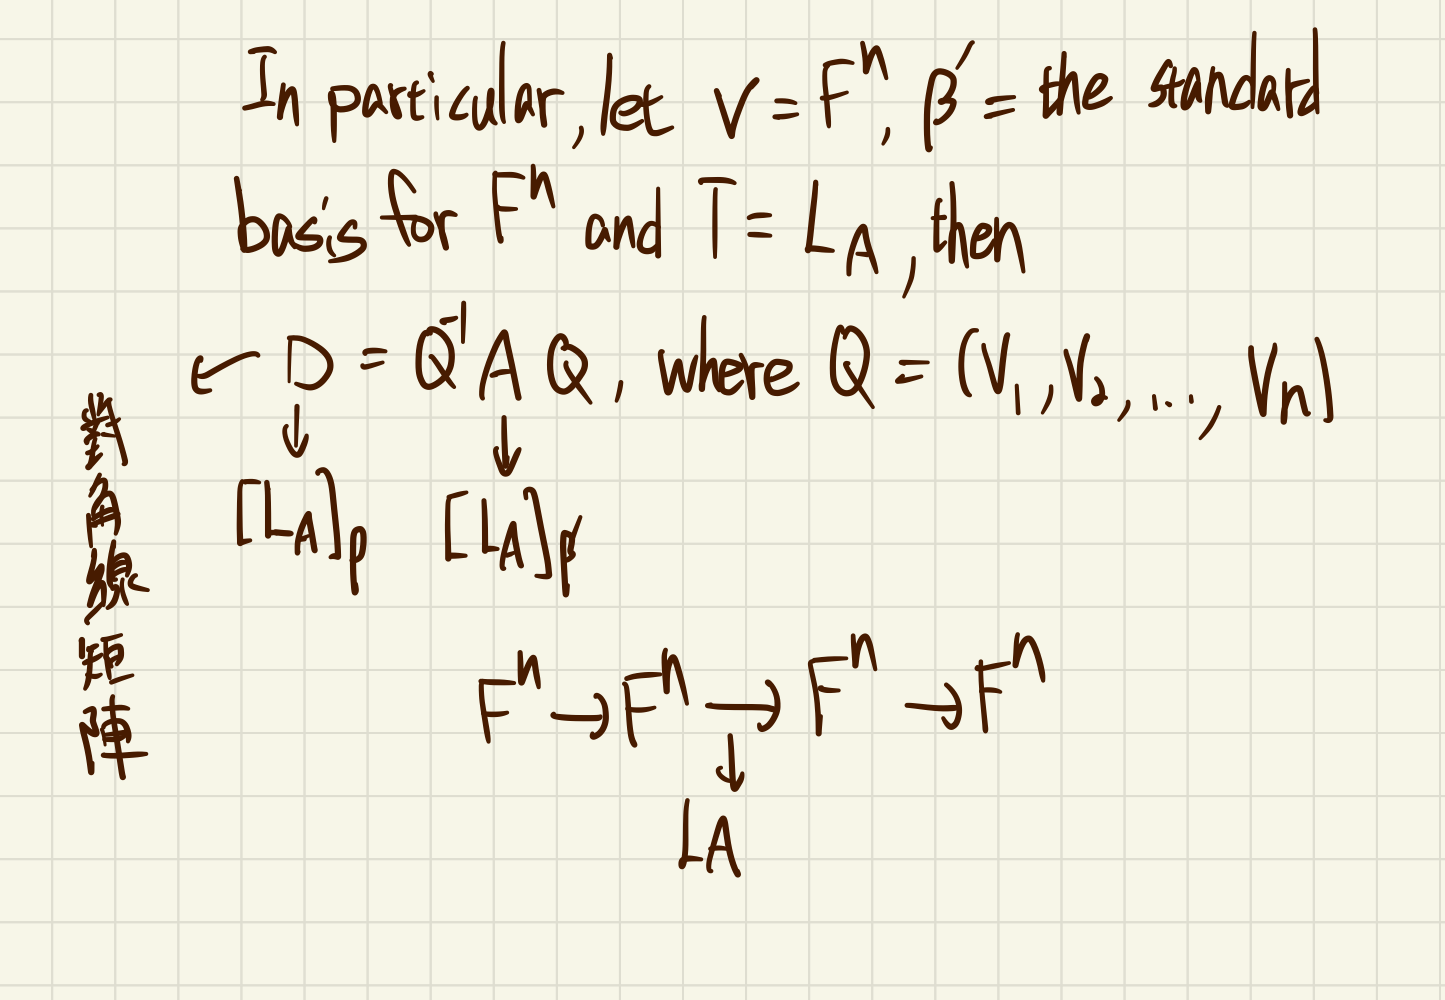 In particular, let V = Fⁿ, β' = the standard
basis for Fⁿ and T = L_A, then
← D = Q⁻¹ A Q, where Q = (V₁, V₂, ..., Vₙ)
↓ ↓
[L_A]_β [L_A]_β'
對角線矩陣
Fⁿ → Fⁿ → Fⁿ → Fⁿ
↓
L_A